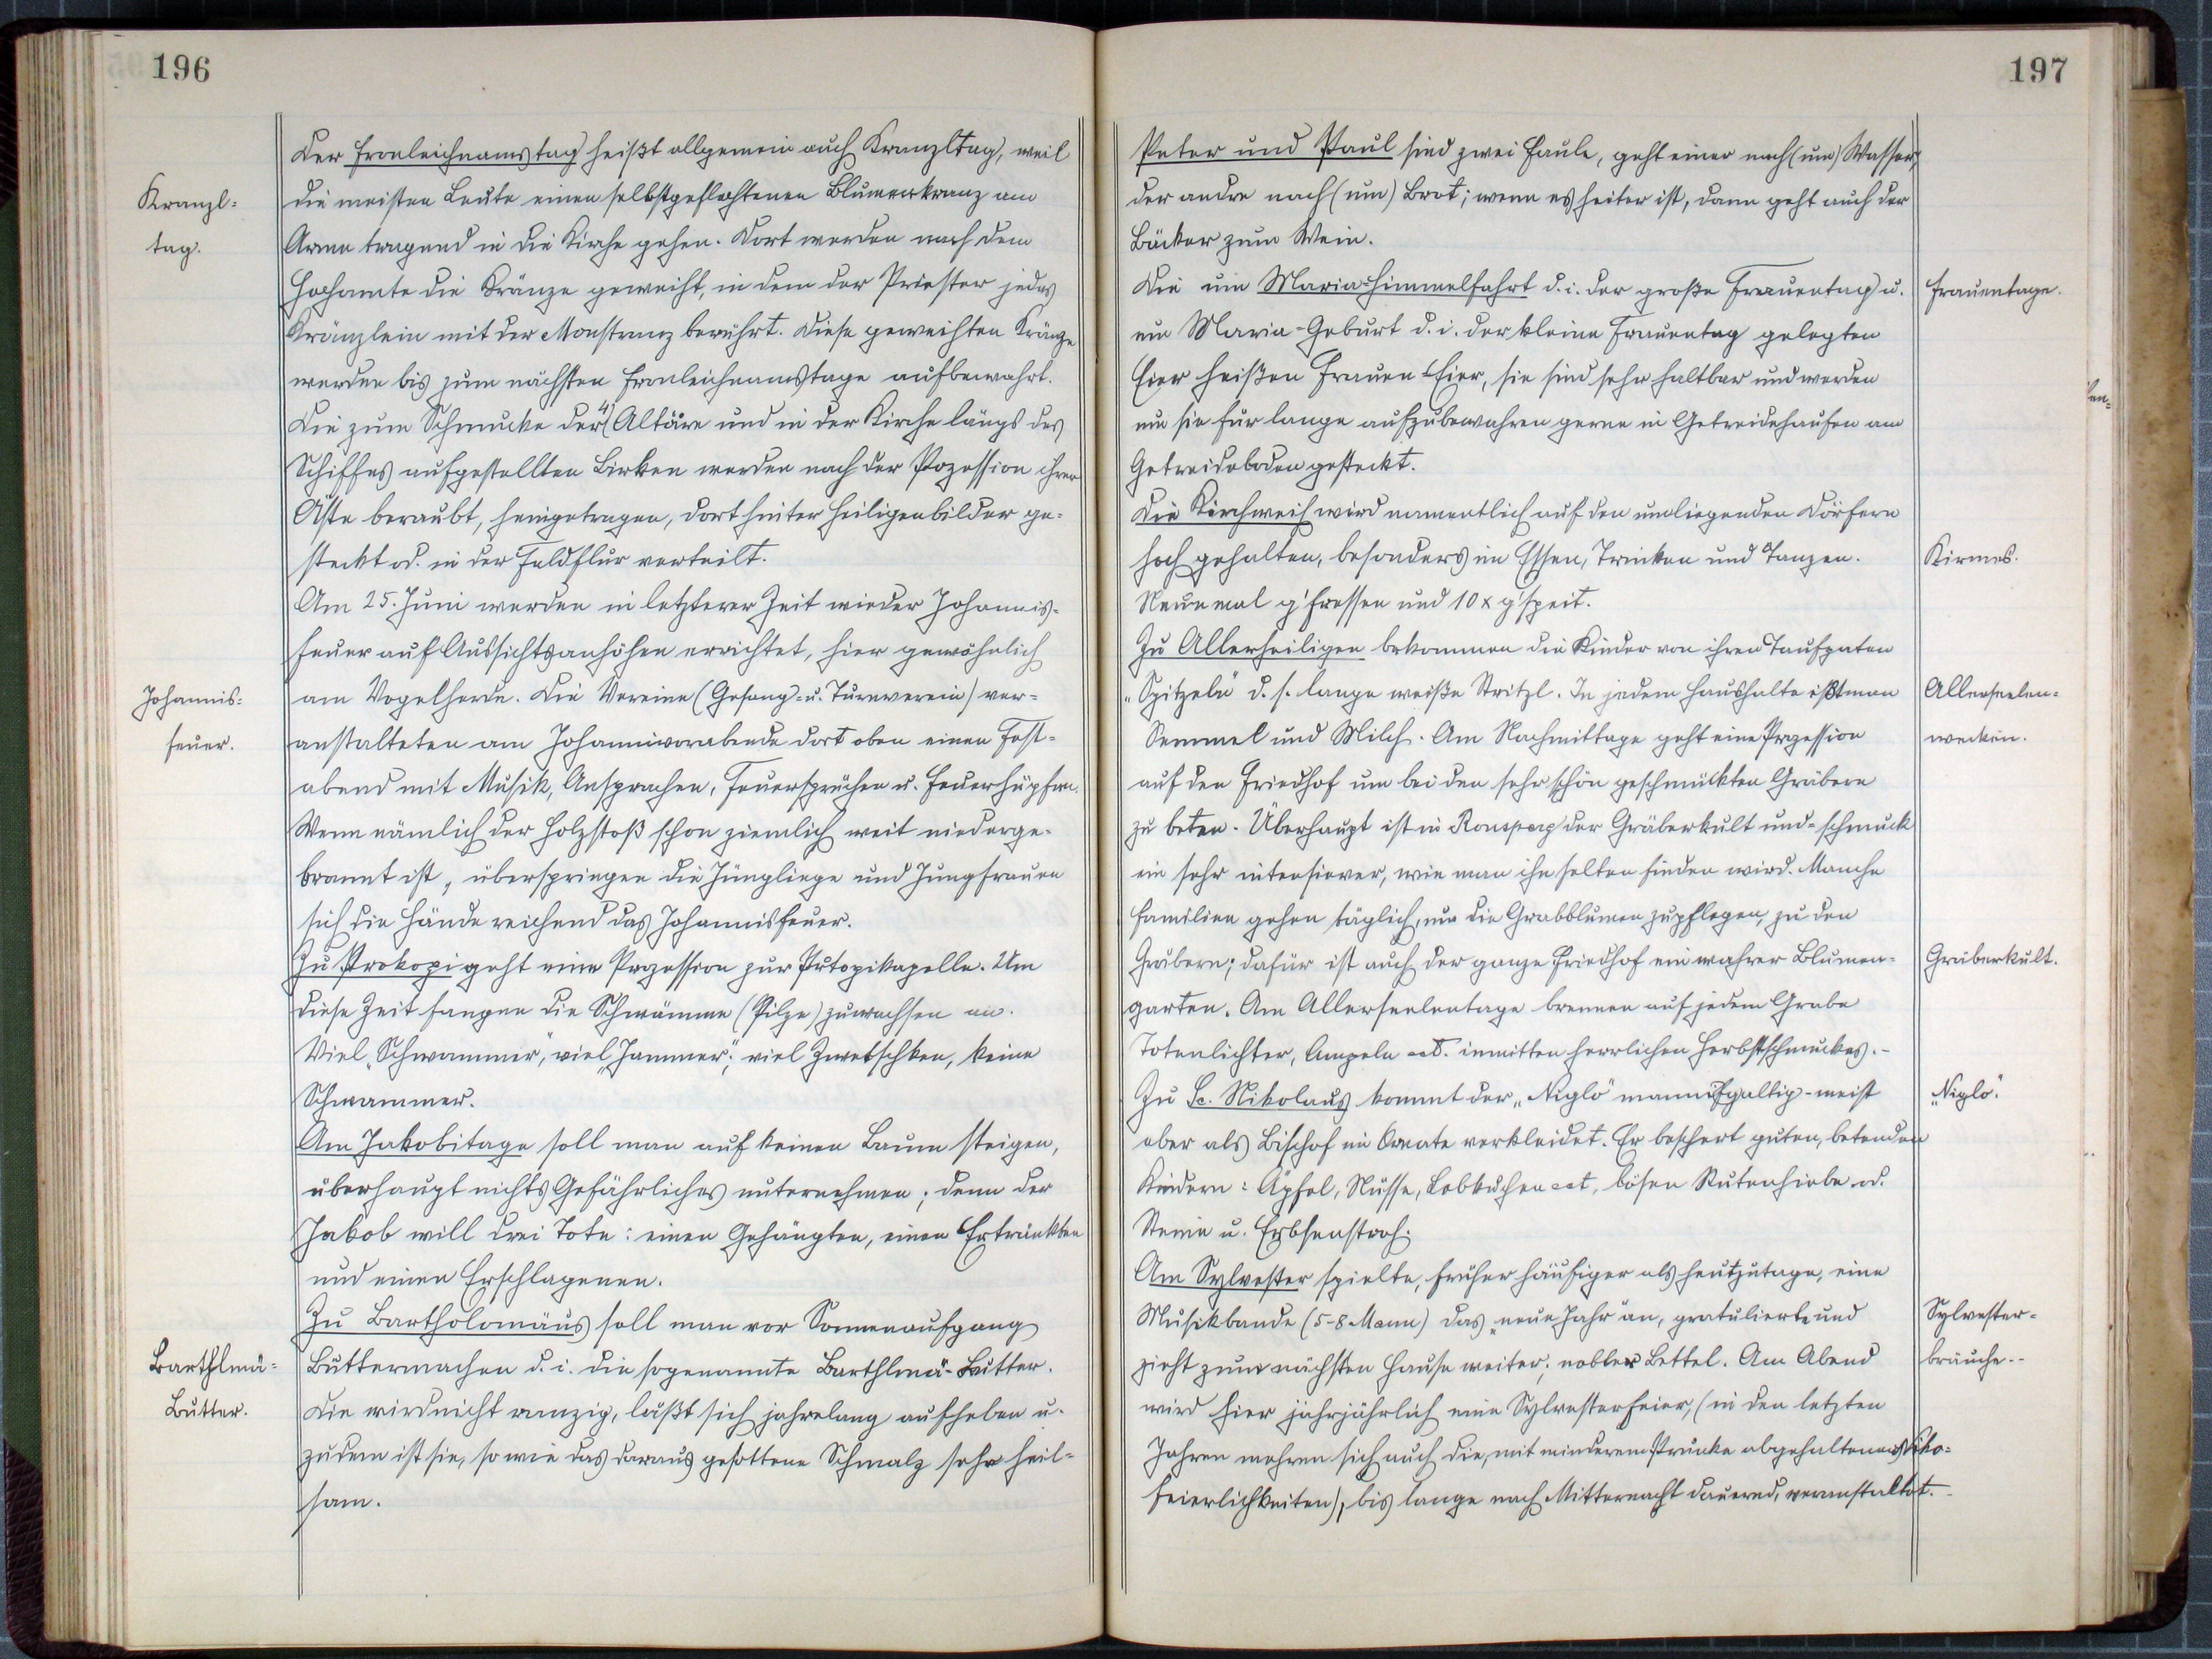 196
Der Fronleichnamstag heißt allgemein auch Kranzltag, weil
Kranzl=
die meisten Leute einen selbstgeflochtenen Blumenkranz am
tag.
Arme tragend in die Kirche gehen. Dort werden nach dem
Hochamte die Kränze geweiht, in dem der Priester jedes
Kränzlein mit der Monstranz berührt. Diese geweihten Kränze
werden bis zum nächsten Fronleichnamstage aufbewahrt.
Die zum Schmucke der 4 Altäre und in der Kirche längs des
Schiffes aufgestellten Birken werden nach der Prozession ihrer
Äste beraubt, heimgetragen, dort hinter Heiligenbilder ge=
steckt od. in der Feldflur verteilt.
Am 25. Juni werden in letzterer Zeit wieder Johannis=
feuer auf Aussichtsanhöhen errichtet, hier gewöhnlich
Johannis=
am Vogelherde. Die Vereine (Gesang= u. Turnverein) ver=
feuer.
anstalteten am Johannivorabende dort oben einen Fest=
abend mit Musik, Ansprachen, Feuersprüchen u. Feuerhüpfen.
Wenn nämlich der Holzstoß schon ziemlich weit niederge=
brannt ist, überspringen die Jünglinge und Jungfrauen
sich die Hände reichend das Johannisfeuer.
Zu Prokopi geht eine Prozession zur Prokopikapelle. Um
diese Zeit fangen die Schwämme (Pilze) zuwachsen an.
Viel „Schwammer", viel „Jammer"; viel Zwetschken, keine
Schwammer.
Am Jakobitage soll man auf keinen Baum steigen,
überhaupt nichts Gefährliches unternehmen; denn der
Jakob will drei Tote: einen Gehängten, einen Ertränkten
und einen Erschlagenen.
Zu Bartholomäus soll man vor Sonnenaufgang
Barthlmä=
Buttermachen d. i. die sogenannte Barthlmä-Butter.
Butter.
Die wird nicht ranzig, läßt sich jahrelang aufheben u.
zudem ist sie, so wie das daraus gesottene Schmalz sehr heil=
sam.
197
Peter und Paul sind zwei Faule, geht einer nach (um) Wasser,
der andre nach (um) Brot; wenn es heiter ist, dann geht auch der
Bäcker zum Wein.
Die um Maria=Himmelfahrt d. i. der große Frauentag u.
Frauentage.
um Maria-Geburt d. i. der kleine Frauentag gelegten
Eier heißen Frauen-Eier, sie sind sehr haltbar und werden
um sie für lange aufzubewahren gerne in Getreidehaufen am
Getreideboden gesteckt.
Die Kirchweih wird namentlich auf den umliegenden Dörfern
hoch gehalten, besonders im Essen, Trinken und Tanzen.
Kirmes.
Neunmal g'fressen und 10 x g'speit.
Zu Allerheiligen bekommen die Kinder von ihren Taufpaten
„Spitzeln" d. s. lange weiße Stritzl. In jedem Haushalte ißt man
Allerseelen=
Semmel und Milch. Am Nachmittage geht eine Prozession
wecken.
auf den Friedhof um bei den sehr schön geschmückten Gräbern
zu beten. Überhaupt ist in Ronsperg der Gräberkult und =schmuck
ein sehr intensiver, wie man ihn selten finden wird. Manche
Familien gehen täglich, um die Grabblumen zupflegen, zu den
Gräbern; dafür ist auch der ganze Friedhof ein wahrer Blumen=
Gräberkult.
garten. Am Allerseelentage brennen auf jedem Grabe
Totenlichter, Ampeln ect. inmitten herrlichen Herbstschmuckes. -
Zu Sc. Nikolaus kommt der „Niglo" mannigfaltig - meist
„Niglo".
aber als Bischof im Ornate verkleidet. Er beschert guten, betenden
Kindern: Äpfel, Nüsse, Lebkuchen ect, bösen Rutenhiebe od.
Steine u. Erbsenstroh.
Am Sylvester spielte, früher häufiger als heutzutage, eine
Musikbande (5-8 Mann) das „neue Jahr" an, gratulierte und
Sylvester=
zieht zum nächsten Hause weiter; nobler Bettel. Am Abend
bräuche. -
wird hier jahrjährlich eine Sylvesterfeier, (in den letzten
Jahren mehren sich auch die, mit minderem Prunke abgehaltenen Niko=
feierlichkeiten), bis lange nach Mitternacht dauernd, veranstaltet. -